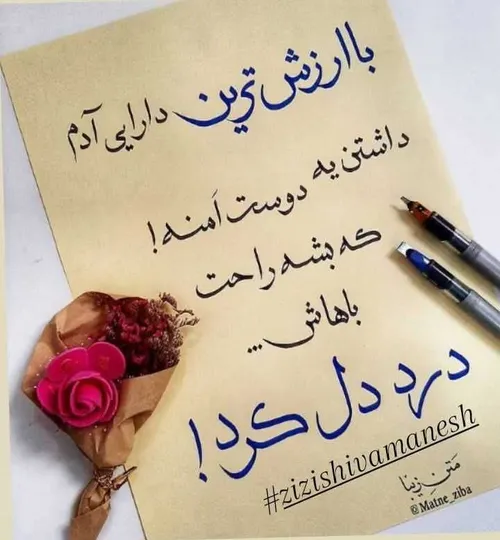 باارزش‌ترین دارایی آدم
داشتن یه دوست اَمنه!
که بشه راحت
باهاش...
درد دل کرد!
#zizishivamanesh
مَتنِ زیبا
@Matne_ziba